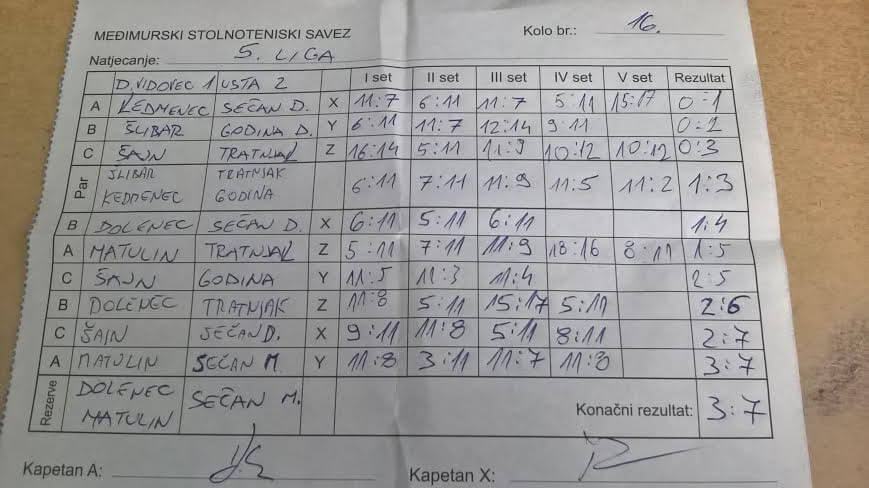 MEĐIMURSKI STOLNOTENISKI SAVEZ Kolo br.: 16.
Natjecanje: 5. LIGA
D. VIDOVEC 1 USTA 2 I set II set III set IV set V set Rezultat
A KEDMENEC SEČAN D. X 11:7 6:11 11:7 5:11 15:17 0:1
B ŠLIBAR GODINA D. Y 6:11 11:7 12:14 9:11 0:2
C ŠAJN TRATNJAK Z 16:14 5:11 11:9 10:12 10:12 0:3
Par ŠLIBAR TRATNJAK
KEDMENEC GODINA 6:11 7:11 11:9 11:5 11:2 1:3
B DOLENEC SEČAN D. X 6:11 5:11 6:11 1:4
A MATULIN TRATNJAK Z 5:11 7:11 11:9 18:16 8:11 1:5
C ŠAJN GODINA Y 11:5 11:3 11:4 2:5
B DOLENEC TRATNJAK Z 11:8 5:11 15:17 5:11 2:6
C ŠAJN SEČAN D. X 9:11 11:8 5:11 8:11 2:7
A MATULIN SEČAN M. Y 11:8 3:11 11:7 11:8 3:7
Rezerve DOLENEC SEČAN M.
MATULIN Konačni rezultat: 3:7
Kapetan A: Kapetan X: